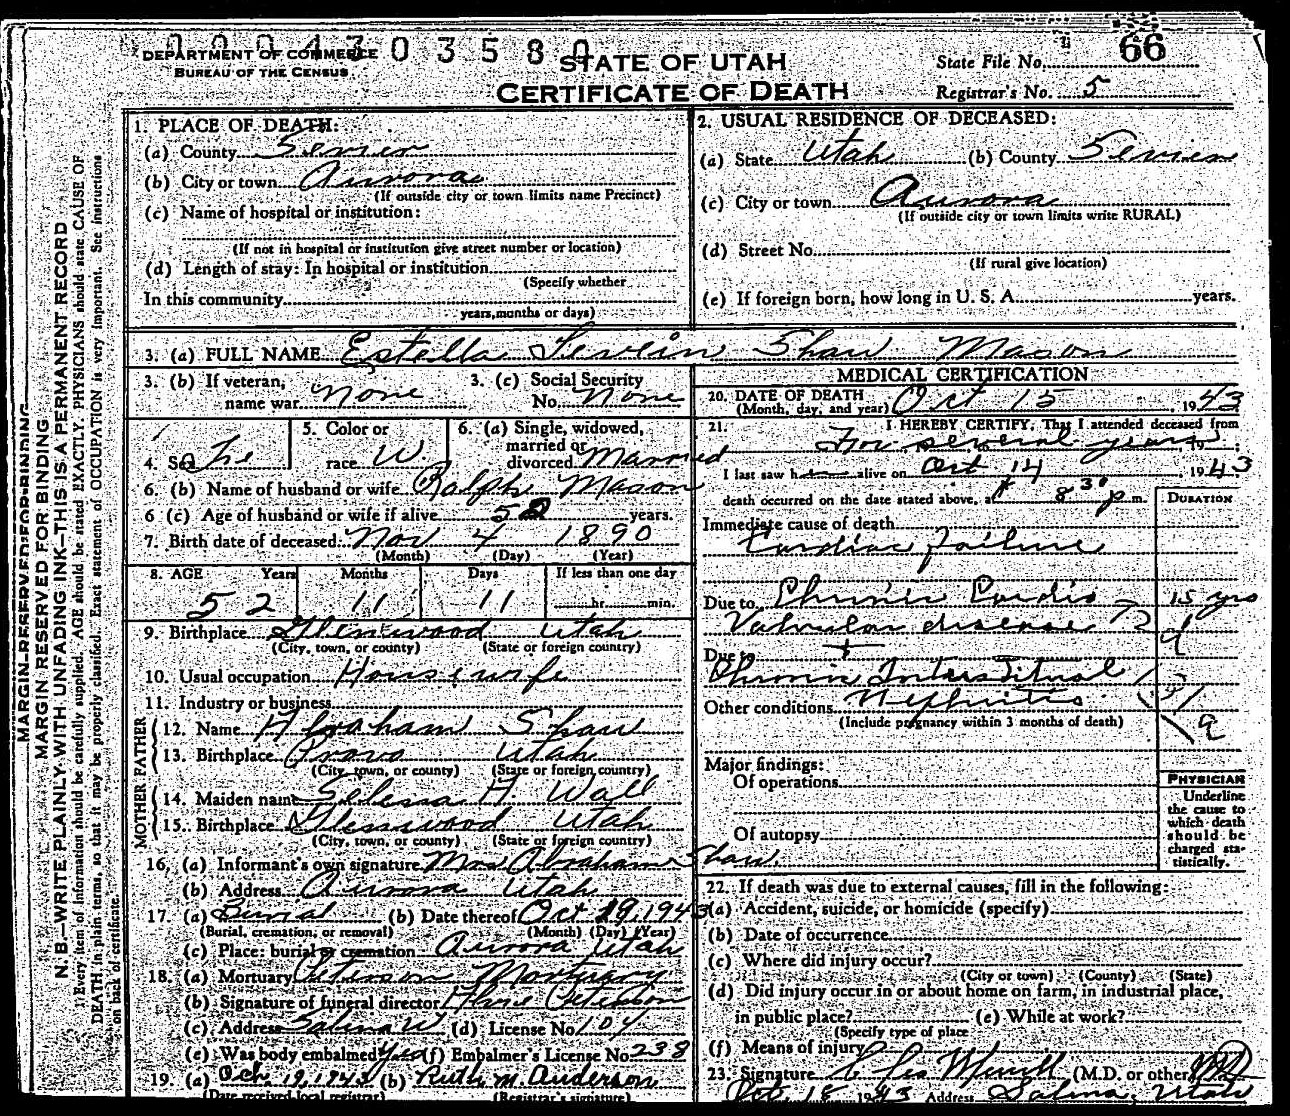 0 0 0 4 3 0 3 5 8 0
DEPARTMENT OF COMMERCE
BUREAU OF THE CENSUS
STATE OF UTAH
CERTIFICATE OF DEATH
State File No. 66
Registrar's No. 5
MARGIN RESERVED FOR BINDING
MARGIN RESERVED FOR BINDING
N. B.—WRITE PLAINLY WITH UNFADING INK—THIS IS A PERMANENT RECORD
Every item of information should be carefully supplied. AGE should be stated EXACTLY. PHYSICIANS should state CAUSE OF
DEATH in plain terms, so that it may be properly classified. Exact statement of OCCUPATION is very important. See instructions
on back of certificate.
1. PLACE OF DEATH:
(a) County Sevier
(b) City or town Aurora
(If outside city or town limits name Precinct)
(c) Name of hospital or institution:
(If not in hospital or institution give street number or location)
(d) Length of stay: In hospital or institution
(Specify whether
In this community
years, months or days)
2. USUAL RESIDENCE OF DECEASED:
(a) State Utah (b) County Sevier
(c) City or town Aurora
(If outside city or town limits write RURAL)
(d) Street No.
(If rural give location)
(e) If foreign born, how long in U. S. A. years.
3. (a) FULL NAME Estella Shaw Mason
3. (b) If veteran,
name war None
3. (c) Social Security
No. None
4. Sex
5. Color or
race W.
6. (a) Single, widowed,
married or
divorced Married
6. (b) Name of husband or wife Ralph Mason
6 (c) Age of husband or wife if alive years.
7. Birth date of deceased Nov 4 1890
(Month) (Day) (Year)
8. AGE Years Months Days If less than one day
52 11 11 hr. min.
9. Birthplace Glenwood Utah
(City, town, or county) (State or foreign country)
10. Usual occupation Housewife
11. Industry or business
FATHER
12. Name Abraham Shaw
13. Birthplace Provo Utah
(City, town, or county) (State or foreign country)
MOTHER
14. Maiden name Wall
15. Birthplace Glenwood Utah
(City, town, or county) (State or foreign country)
16. (a) Informant's own signature Mrs Abraham Shaw
(b) Address Aurora Utah
17. (a) Burial (b) Date thereof Oct 19, 1943
(Burial, cremation, or removal) (Month) (Day) (Year)
(c) Place: burial or cremation Aurora Utah
18. (a) Mortuary Peterson Mortuary
(b) Signature of funeral director Peterson
(c) Address Salina U (d) License No. 104
(e) Was body embalmed Yes (f) Embalmer's License No. 238
19. (a) Oct. 19, 1943 (b) Ruth M. Anderson
(Date received local registrar) (Registrar's signature)
MEDICAL CERTIFICATION
20. DATE OF DEATH
(Month, day, and year) Oct 15, 1943
21. I HEREBY CERTIFY, That I attended deceased from
For several years, to
I last saw h alive on Oct 14 1943
death occurred on the date stated above, at 8 30 p m.
DURATION
Immediate cause of death
Cardiac failure
Due to Chronic Cardio- 15 yrs
Valvular disease
Due to +
Chronic Interstitial
Other conditions Nephritis
(Include pregnancy within 3 months of death)
Major findings:
Of operations
Of autopsy
PHYSICIAN
Underline
the cause to
which death
should be
charged sta-
tistically.
22. If death was due to external causes, fill in the following:
(a) Accident, suicide, or homicide (specify)
(b) Date of occurrence
(c) Where did injury occur?
(City or town) (County) (State)
(d) Did injury occur in or about home on farm, in industrial place,
in public place? (e) While at work?
(Specify type of place
(f) Means of injury
23. Signature Merrill (M.D. or other) MD
1943 Address Salina, Utah